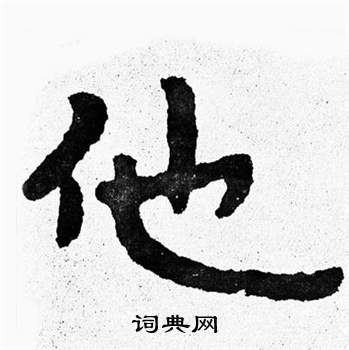 他
词典网